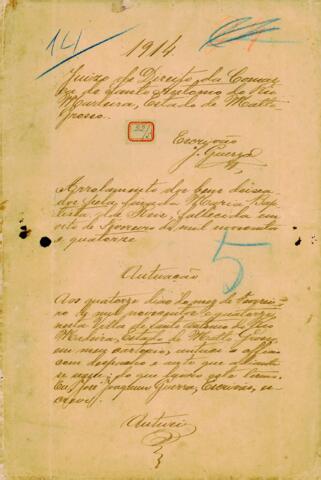 14
1914
Juizo de Direito da Comar-
ca de Santo Antonio do Rio
Madeira, Estado de Matto
Grosso.
Escrivão
J. Guerra
Arrolamento dos bens deixa-
dos pela finada Maria Bap-
tista da fallecida em
oito de de mil novecentos
e quatorze
5
Autuação
Aos quatorze dias do mez de
ro de mil novecentos e quatorze,
nesta Villa de Santo Antonio do Rio
Madeira, Estado de Matto Gros-
em meu cartorio, autuei a
com despacho e que adiante
se do que faço este termo.
Eu, José Joaquim Guerra, Escrivão, es-
crevi.
Autuei